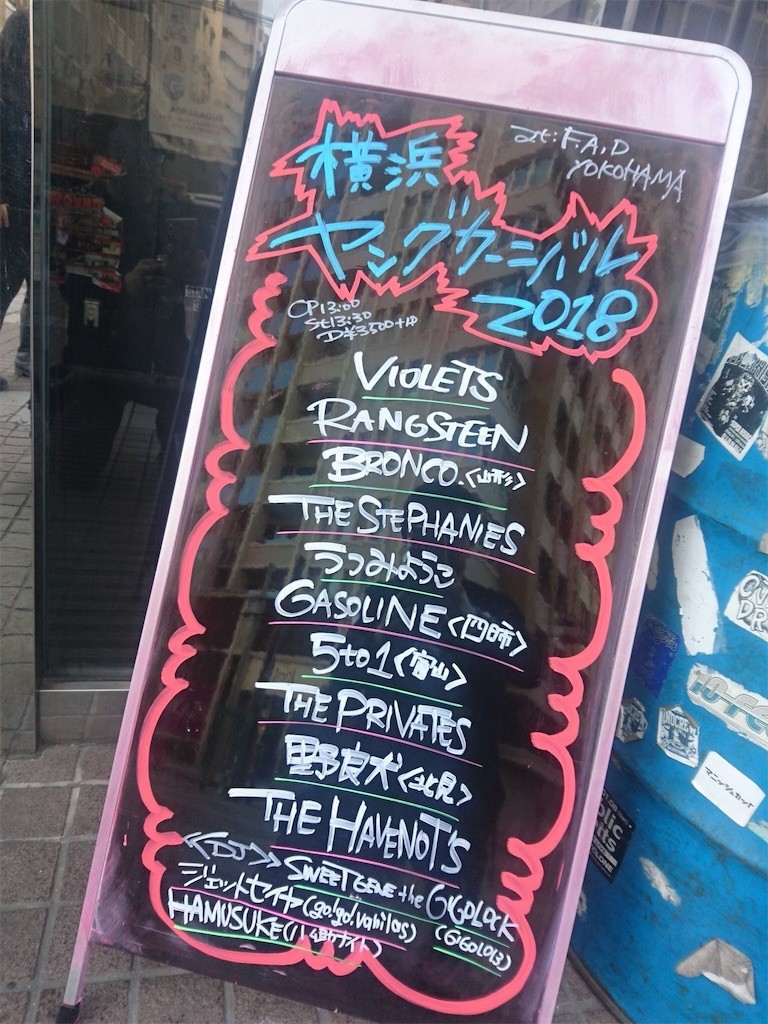 at: F.A.D
YOKOHAMA
横浜
ヤングカーニバル
2018
OP13:00
St13:30
D¥3500+1D
VIOLETS
RANGSTEEN
BRONCO.<山形>
THE STEPHANIES
うつみようこ
GASOLINE<四日市>
5to1<富山>
THE PRIVATES
野良犬<北見>
THE HAVENOT'S
<DJ> SWEET GENE the GIGOLOCK
ジェットセイヤ(go!go!vanillas) (GIGOLO13)
HAMUSUKE(ハム助ナイト)
マニッシュカット